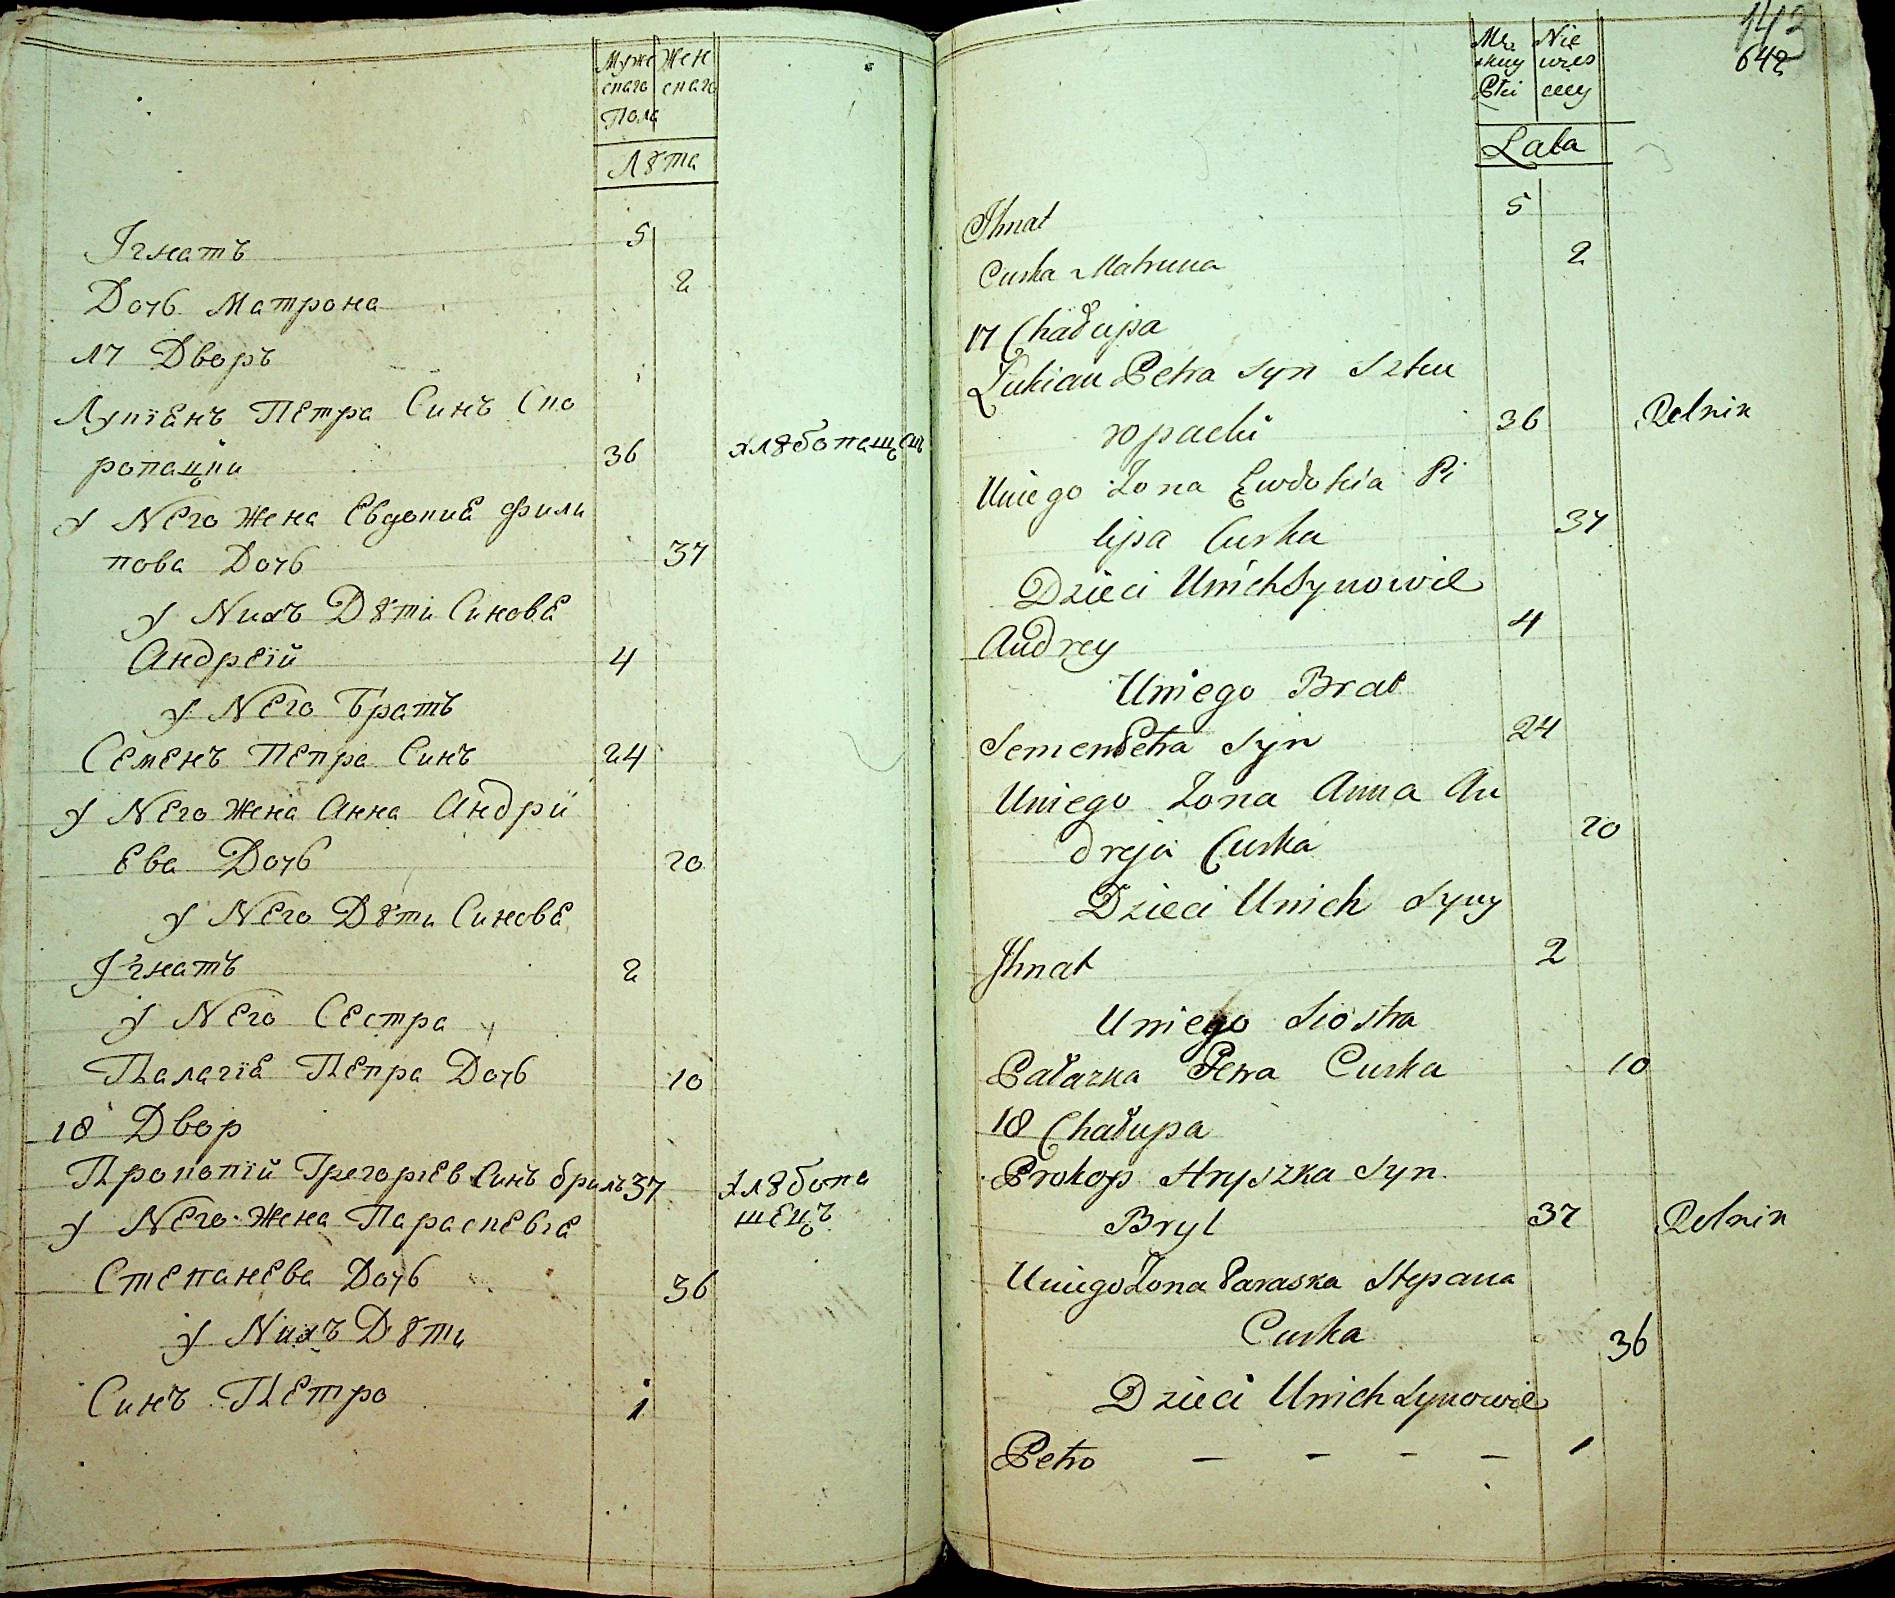 Муже Жен
скаго скаго
Пола
Лѣта
Ігнатъ 5
Дочь Матрона 2
17 Дворъ
Лукіанъ Петра Синъ Ско
ропацки 36 хлѣбопашецъ
у Него Жена Евдокие Фили
пова Дочь 37
у Нихъ Дѣти Синове
Андреій 4
у Него Братъ
Семенъ Петра Синъ 24
у Него Жена Анна Андрїи
ева Дочь 20
у Него Дѣти Синове
Ігнатъ 2
у Него Сестра
Палагіе Петра Дочь 10
18 Двор
Прокопїй Грегориев Синъ брилъ 37 хлѣбопа
у Него Жена Параскевіе шецъ
Степанева Дочь 36
у Нихъ Дѣти
Синъ Петро 1
143
642
Mę Nie
skiey wies
Płci ciey
Lata
Ihnat 5
Curka Matruna 2
17 Chałupa
Łukian Petra Syn Sku
ropacki 36 Rolnik
Uniego Zona Ewdokia Fi
lipa Curka 37
Dzieci Unich Synowie
Andrey 4
Uniego Brat
Semen Petra Syn 24
Uniego Zona Anna An
dreja Curka 20
Dzieci Unich Syny
Ihnat 2
Uniego Siostra
Pałazka Petra Curka 10
18 Chałupa
Prokop Hryszka Syn
Bryl 37 Rolnik
Uniego Zona Paraska Stepana
Curka 36
Dzieci Unich Synowie
Petro - - - - 1